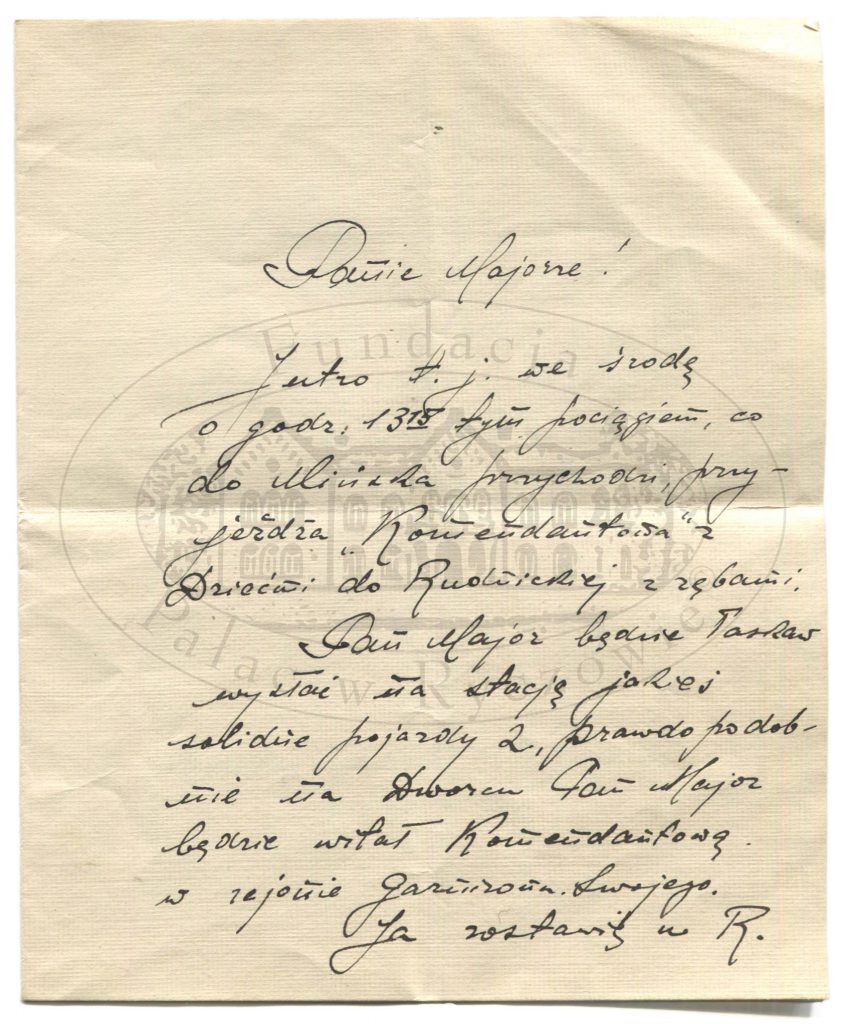 Panie Majorze!
Jutro t. j. we środę
o godz. 13 15 tym pociągiem, co
do Mińska przychodzi, przy-
jeżdża "Komendantowa" z
Dziećmi do Rudnickiej z zębami.
Pan Major będzie łaskaw
wysłać na stację jakieś
solidne pojazdy 2, prawdopodob-
nie na Dworcu Pan Major
będzie witał Komendantową
w rejonie Garnizonu Swojego.
Ja zostawię w R.
Fundacja
Pałac w Ryczowie